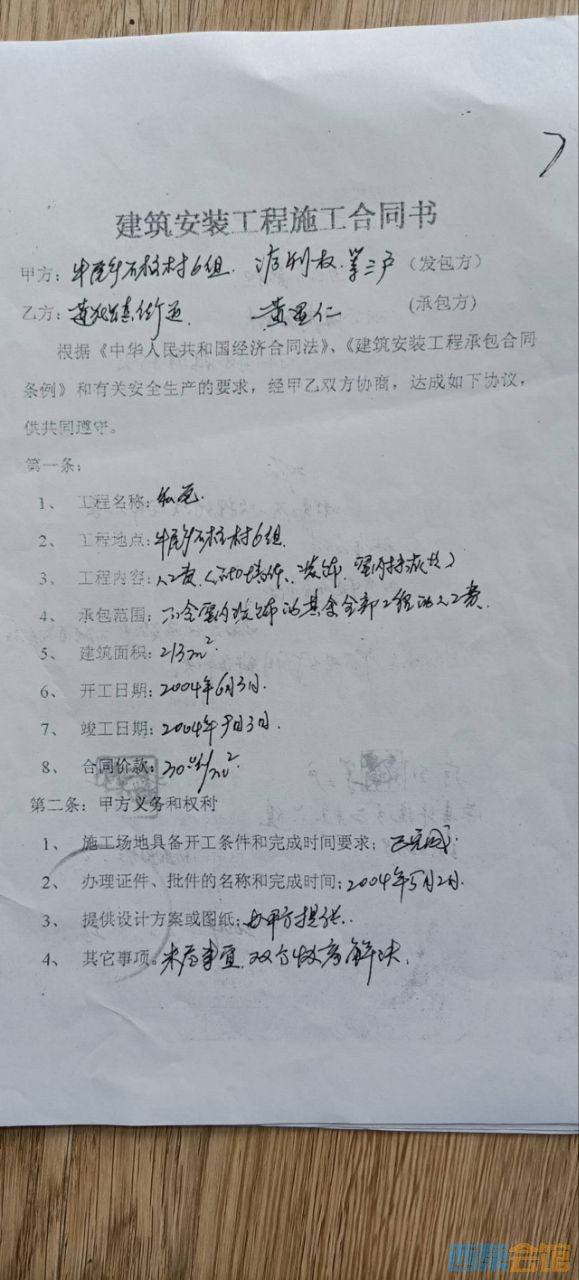 建筑安装工程施工合同书
甲方：牛尾乡石柱村6组. 权. 等三户（发包方）
乙方： 黄显仁 (承包方)
根据《中华人民共和国经济合同法》、《建筑安装工程承包合同
条例》和有关安全生产的要求，经甲乙双方协商，达成如下协议，
供共同遵守。
第一条：
1、 工程名称：私宅.
2、 工程地点：牛尾乡石柱村6组.
3、 工程内容：人工费
4、 承包范围：不含室内装饰的其余全部工程的人工费.
5、 建筑面积：213m².
6、 开工日期：2004年6月3日.
7、 竣工日期：2004年9月3日.
8、 合同价款： /m²
第二条：甲方义务和权利
1、 施工场地具备开工条件和完成时间要求：已完成.
2、 办理证件、批件的名称和完成时间：2004年5月2日.
3、 提供设计方案或图纸：由甲方提供.
4、 其它事项。未尽事宜.双方协商解决.
西祠会馆